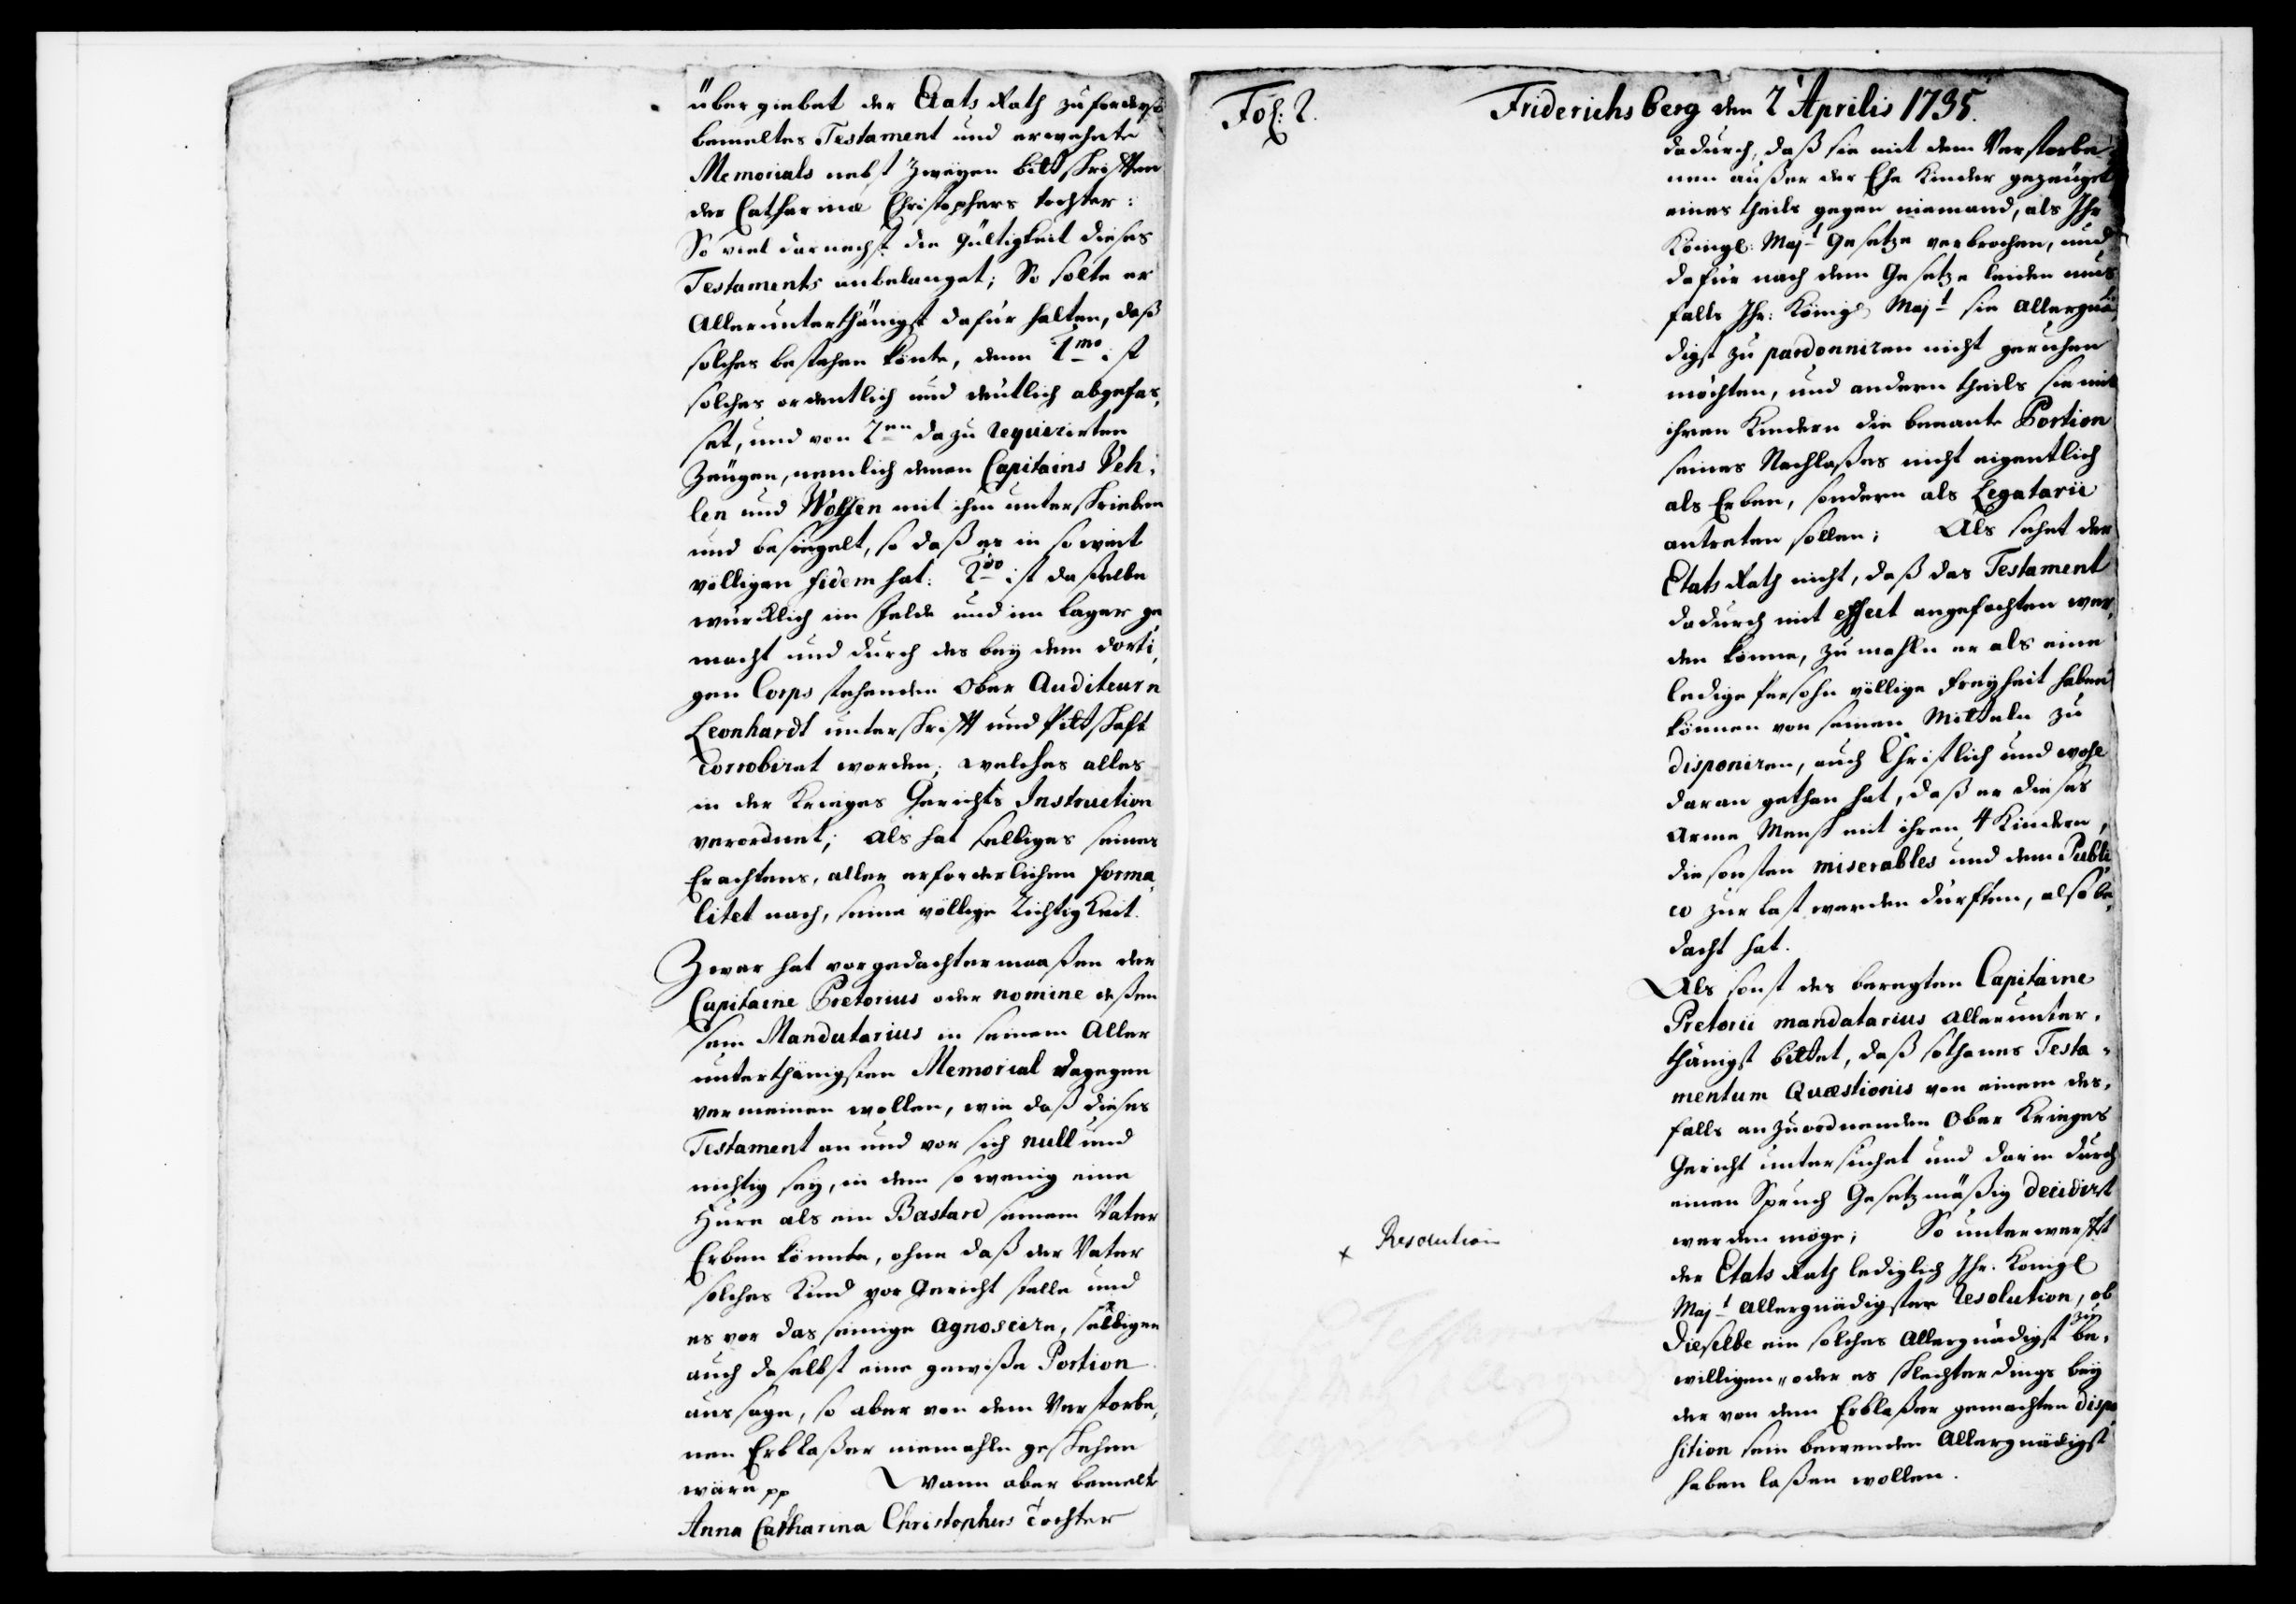 übergiebet der Etats Rath zuforderst
bemeltes Testament und erwehnte
Memorials nebst zweyen bittschrifften
der Catharinæ Christophers tochter:
So viel darnechst die gültigkeit dieses
Testaments anbelanget; So solte er
Allerunterthänigst dafür halten, daß
solches bestehen könte, denn 1mo ist
solches ordentlich und deutlich abgefas,
set, und von 2en dazu requirirten
Zeugen, nemlich denen Capitains Veh,
len und Wolfen mit ihm unterschrieben
und besiegelt, so daß es in so weit
völligen fidem hat: 2do ist daßelbe
würcklich im felde und im lager ge
macht und durch des bey dem dorti,
gen Corps stehenden Ober Auditeurn
Leonhardt unterschrifft und Pittschaft
corrobiret worden; welches alles
in der Krieges Gerichts Instruction
verordnet; als hat selbiges seines
Erachtens, aller erforderlichen forma,
litet nach, seine völlige richtigkeit.
Zwar hat vorgedachtermaaßen der
Capitaine Pretorius oder nomine deßen
sein Mandatarius in seinem Aller
unterthänigsten Memorial dagegen
vermeinen wollen, wie daß dieses
Testament an und vor sich null und
nichtig sey, in dem so wenig eine
Hure als ein Bastard seinem Vater
Erben könnte, ohne daß der Vater
solches Kind vor Gericht stelle und
es vor das seinige agnoscire, selbigen
auch daselbst eine gewiße Portion
aussage, so aber von dem Verstorbe,
nen Erblaßer niemahln geschehen
wäre pp Wann aber bemelte
Anna Catharina Christophers Tochter
Fol: 2.
Friderichsberg den 2 Aprilis 1735.
dadurch, daß sie mit dem Verstorbe,
nen außer der Ehe Kinder gezeuget
eines theils gegen niemand, als Ihr
Königl: Maj-t Gesetze verbrochen, und
dafür nach dem Gesetze leiden mus
falls Ihr: Königl Maj-t sie allergnä,
digst zu pardonniren nicht geruhen
möchten, und andern theils sie mit
ihren Kindern die benante Portion
seines Nachlaßes nicht eigentlich
als Erben, sondern als Legatarii
antreten sollen; Als sehet der
Etats Rath nicht, daß das Testament
dadurch mit effect angefochten wer,
den könne, zu mahln er als eine
ledige Persohn völlige freyheit haben
können von seinen Mitteln zu
disponiren, auch Christlich und wohl
daran gethan hat, daß er dieses
arme Mensch mit ihren 4 Kindern,
die sonsten miserables und dem Publi
co zur last werden dürfften, also be,
dacht hat.
Als sonst des beregten Capitaine
Pretorii mandatarius allerunter,
thänigst bittet, daß sothanes Testa,
mentum Quæstionis von einem des,
falls anzuordnenden Ober Krieges
Gericht untersuchet und darin durch
einen Spruch Gesetzmäßig decidiret
werden möge; So unterwerfft
der Etats Rath lediglich Ihr. Königl
Maj-t allergnädigster resolution, ob
zu
Dieselbe ein solches allergnädigst be,
willigen, oder es schlechterdings bey
der von dem Erblaßer gemachten dispo
sition sein bewenden allergnädigst
haben laßen wollen.
x Resolution